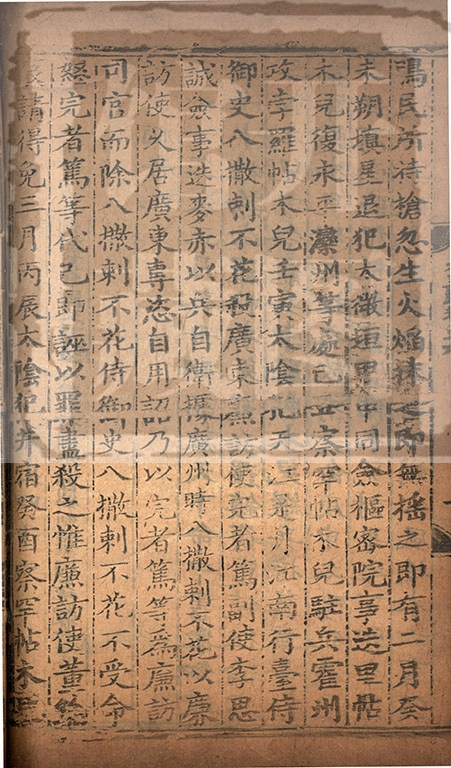 鳴民所持槍忽生火焰抹之即無搖之即有二月癸
未朔填星退犯太微垣甲申同僉樞密院事迭里帖
木兒復永平灤州等處己酉察罕帖木兒駐兵霍州
攻孛羅帖木兒壬寅太陰犯天江是月江南行臺侍
御史八撒剌不花殺廣東廉訪使完者篤副使李思
誠僉事迭麥赤以兵自衛據廣州時八撒剌不花以廉
訪使久居廣東專恣自用詔乃以完者篤等爲廉訪
司官而除八撒剌不花侍御史八撒剌不花不受命
怒完者篤等代己即誣以罪盡殺之惟廉訪使董鑰
哀請得免三月丙辰太陰犯井宿癸酉察罕帖木兒